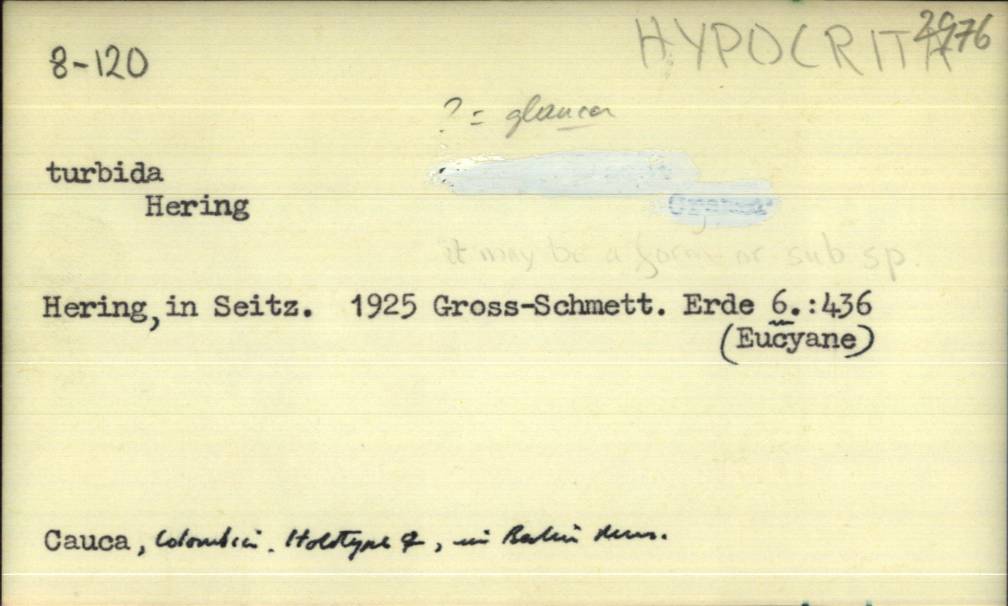 8-120
HYPOCRITA 2976
?= glauca
turbida
Hering
it may be a form or sub sp.
Hering, in Seitz. 1925 Gross-Schmett. Erde 6.:436
(Eucyane)
Cauca, Colombia. Holotype ♀, in Berlin Mus.